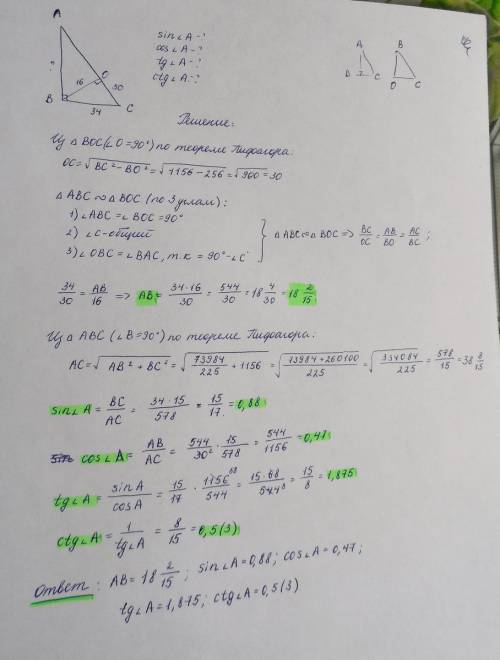 A
?
O
16
30
B
34
C
sin∠A-?
cos∠A-?
tg∠A-?
ctg∠A-?
A
B C
B
O C
Решение:
Из △BOC(∠O=90°) по теореме Пифагора:
OC=√BC²-BO² = √1156-256 = √900 = 30
△ABC ∾ △BOC (по 3 углам):
1) ∠ABC = ∠BOC = 90°
2) ∠C-общий
3) ∠OBC = ∠BAC, т.к = 90°-∠C
} △ABC ∾ △BOC => BC/OC = AB/BO = AC/BC ;
34/30 = AB/16 => AB = 34·16/30 = 544/30 = 18 4/30 = 18 2/15
Из △ABC (∠B=90°) по теореме Пифагора:
AC = √AB²+BC² = √73984/225 + 1156 = √73984+260100/225 = √334084/225 = 578/15 = 38 8/15
sin∠A = BC/AC = 34·15/578 = 15/17 = 0,88
cos∠A = AB/AC = 544/30 · 15/578 = 544/1156 = 0,47
tg∠A = sinA/cosA = 15/17 · 1156/544 = 15·68/544 = 15/8 = 1,875
ctg∠A = 1/tg∠A = 8/15 = 0,5(3)
Ответ: AB=18 2/15 ; sin∠A=0,88; cos∠A=0,47;
tg∠A=1,875; ctg∠A=0,5(3)